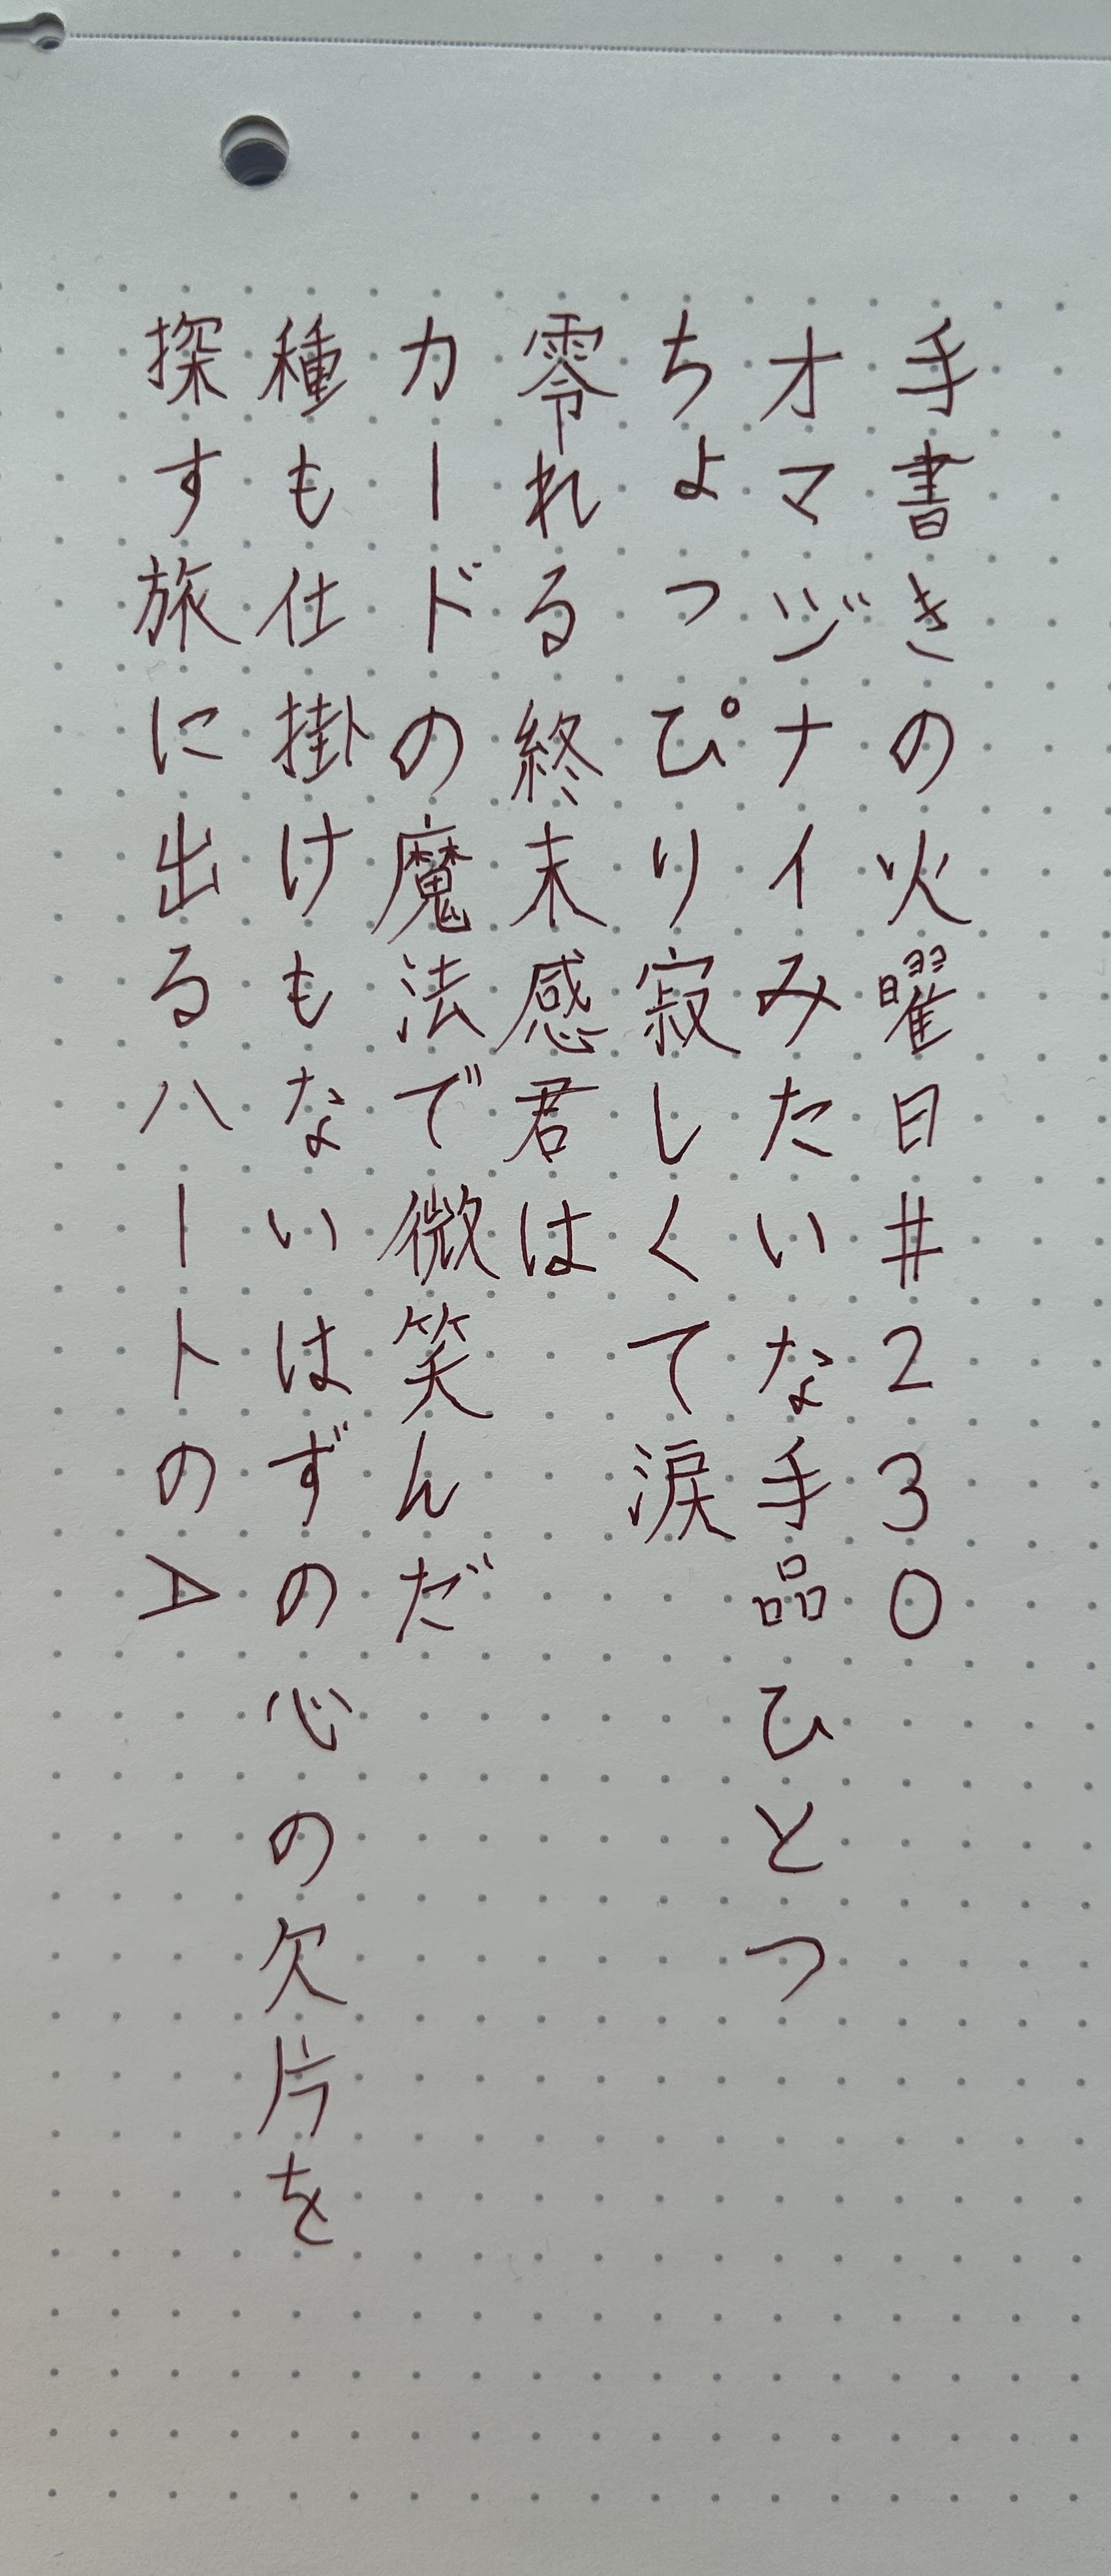 手書きの火曜日#230
オマジナイみたいな手品ひとつ
ちょっぴり寂しくて涙
零れる終末感君は
カードの魔法で微笑んだ
種も仕掛けもないはずの心の欠片を
探す旅に出るハートのA